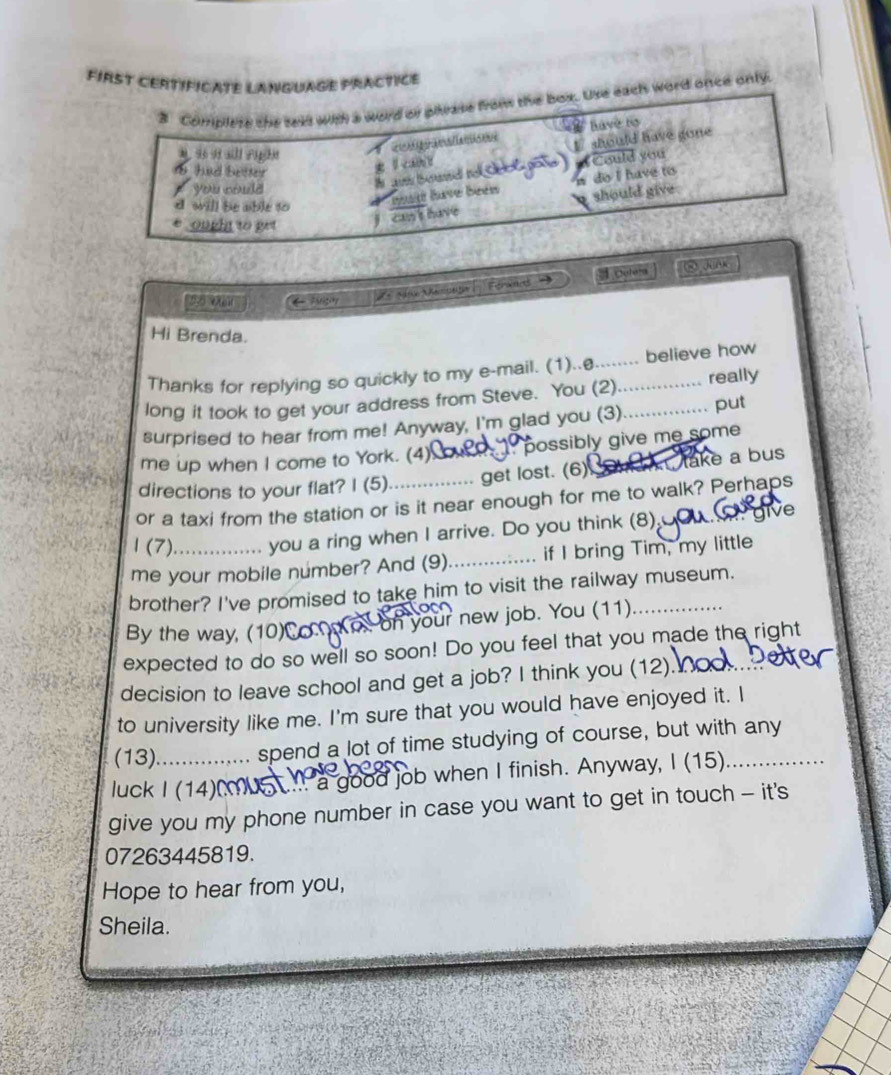 FIRST CERTIFICATE LANGUAGE PRACTICE
3 Complete the text with a word or phrase from the box. Use each word once only.
a is it all right
b had better
c you could
d will be able to
e ought to get
f congratulations
g I can't
h am bound to (obbligato)
i must have been
j can't have
k have to
l should have gone
m Could you
n do I have to
o should give
Mail
Reply
New Message
Forward
Delete
Junk
Hi Brenda.
Thanks for replying so quickly to my e-mail. (1)..g........ believe how
long it took to get your address from Steve. You (2).............. really
surprised to hear from me! Anyway, I'm glad you (3).............. put
me up when I come to York. (4) Coued you possibly give me some
directions to your flat? I (5).............. get lost. (6) take a bus
or a taxi from the station or is it near enough for me to walk? Perhaps
I (7).............. you a ring when I arrive. Do you think (8) you coued give
me your mobile number? And (9).............. if I bring Tim, my little
brother? I've promised to take him to visit the railway museum.
By the way, (10) on your new job. You (11)..............
expected to do so well so soon! Do you feel that you made the right
decision to leave school and get a job? I think you (12) had better
to university like me. I'm sure that you would have enjoyed it. I
(13).............. spend a lot of time studying of course, but with any
luck I (14) must have been a good job when I finish. Anyway, I (15)..............
give you my phone number in case you want to get in touch – it's
07263445819.
Hope to hear from you,
Sheila.